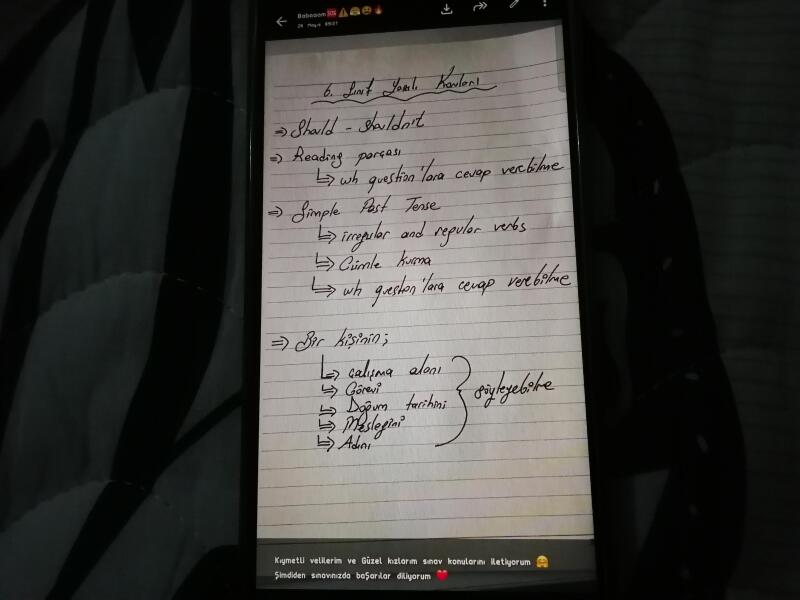 Babaaam🆘⚠️😤😆🔥
26 Mayıs 09:21
6. Sınıf Yazılı Konuları
⇒ Should - Shouldn't
⇒ Reading parçası
↳ wh question'lara cevap verebilme
⇒ Simple Past Tense
↳ irregular and regular verbs
↳ Cümle kurma
↳ wh question'lara cevap verebilme
⇒ Bir kişinin;
↳ çalışma alanı
⇒ Görevi
⇒ Doğum tarihini
⇒ Mesleğini
⇒ Adını
söyleyebilme
Kıymetli velilerim ve Güzel kızlarım sınav konularını iletiyorum 🤗
Şimdiden sınavınızda başarılar diliyorum ❤️